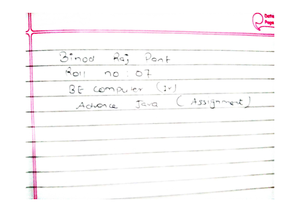 Binod Raj Pant
Roll no : 07
BE computer (IV)
Advance Java (Assignment)